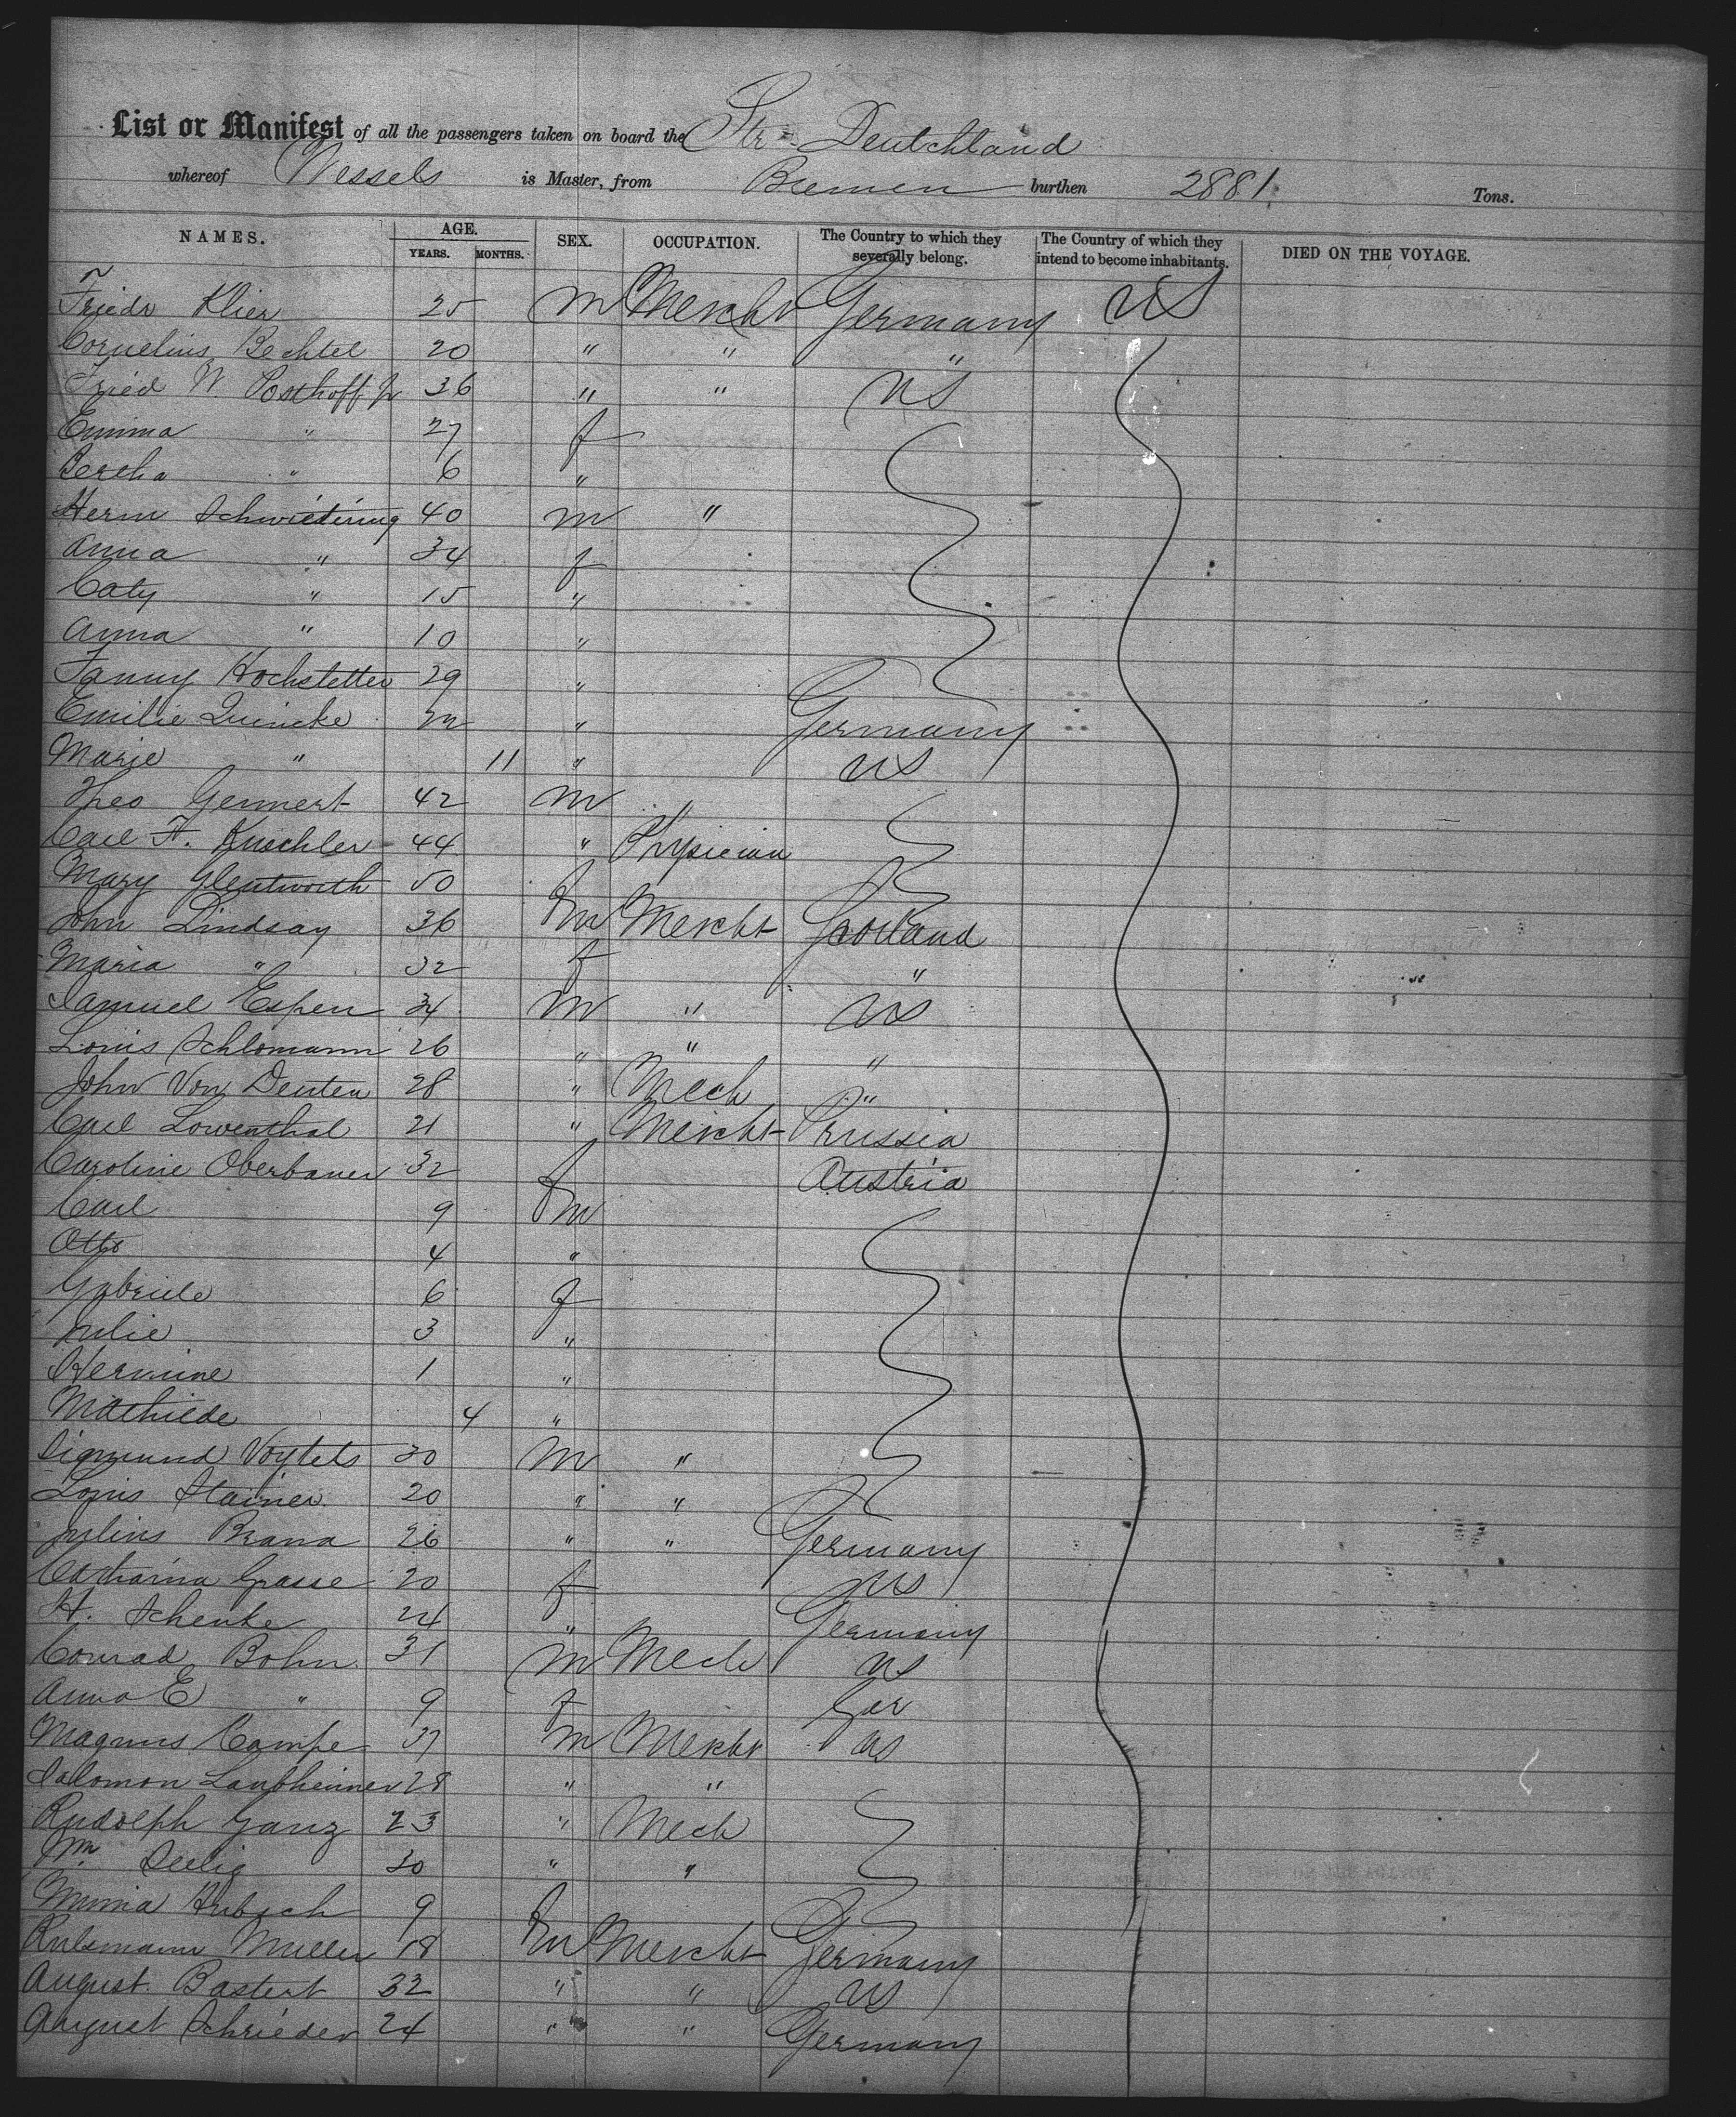 List or Manifest of all the passengers taken on board the Str. Deutchland
whereof Wessels is Master, from Bremen burthen 2881 Tons.
NAMES. AGE. YEARS. MONTHS. SEX. OCCUPATION. The Country to which they severally belong. The Country of which they intend to become inhabitants. DIED ON THE VOYAGE.
Friedr Klier 25 m Mercht Germany US
Cornelius Bechtel 20 " " "
Fried W. Posthoff Jr 36 " " US
Emma " 27 f
Bertha " 6 "
Herm Schwietering 40 m "
Anna " 34 f
Caty " 15 "
Anna " 10 "
Fanny Hochstetter 29 "
Emilie Quincke " Germany
Marie " 11 " US
Theo Gennert 42 m "
Carl F. Kuechler 44 " Physician
Mary Glentworth 50 f
John Lindsay 36 m Mercht Scotland
Maria " 32 f "
Samuel Espen 34 m " US
Louis Schlomann 26 " " "
John Von Deuten 28 " Mech "
Carl Lowenthal 21 " Mercht Prussia
Caroline Oberbauer 32 f Austria
Carl 9 m
Otto 4 "
Gabriele 6 f
Julie 3 "
Hermine 1 "
Mathilde 4 "
Sigmund Voytets 30 m "
Louis Stainer 20 " "
Julius Brana 26 " " Germany
Catharina Grasse 20 f US
H. Schenke 24 " Germany
Conrad Bohn 31 m Mech US
Anna E " 9 f Ger
Magnus Campe 37 m Mercht US
Salomon Laubheimer 28 " "
Rudolph Ganz 23 " Mech
Wm Seelig 30 " "
Minna Hubsch 9 f
Muller 18 m Mercht Germany
August Bastert 32 " " US
August Schrieder 24 " " Germany